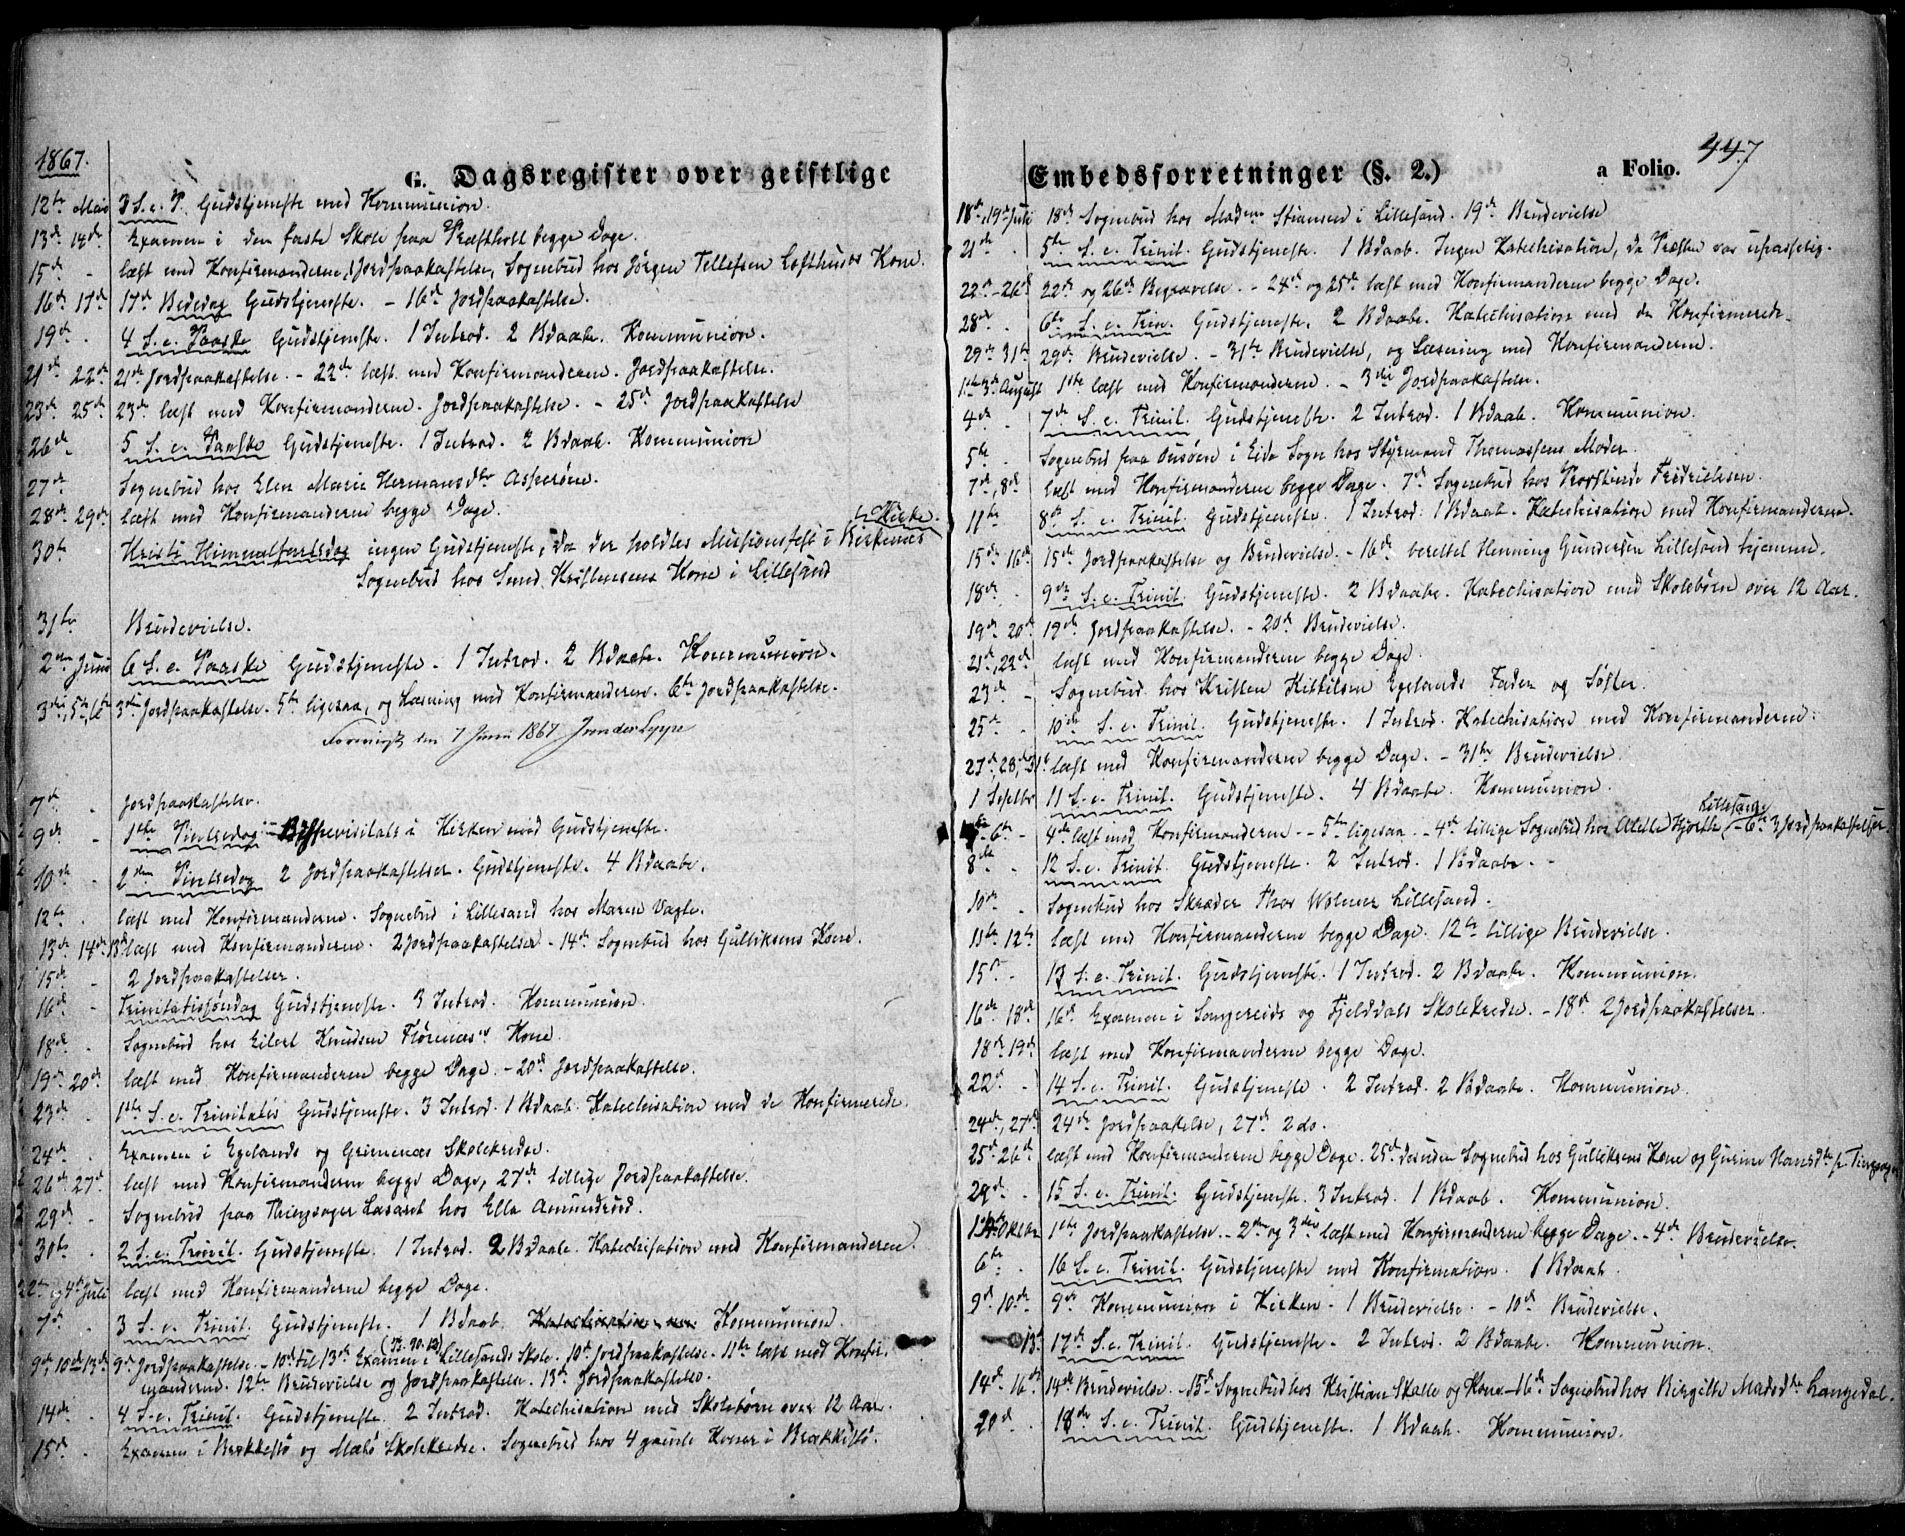 1867.
G. Dagsregister over geistlige
12te Mai 3 S. e. P. Gudstjeneste med Kommunion.
13de 14de Examen i den faste Skole paa Præstholt begge Dage.
15de - læst med Konfirmanderne, Jordpaakastelse, Sognebud hos Jørgen Tellefsen Lofthuus Kone.
16de 17de 17de Bededag Gudstjeneste. - 16de Jordpaakastelse.
19de - 4 S. e. Paaske Gudstjeneste. 1 Introd. 2 Bdaabe. Kommunion.
21de 22de 21de Jordpaakastelse. - 22de læst med Konfirmanderne. Jordpaakastelse.
23de 25de 23de læst med Konfirmanderne. Jordpaakastelse. - 25de Jordpaakastelse
26de 5 S. e. Paaske Gudstjeneste. 1 Introd. 2 Bdaab. Kommunion
27de Sognebud hos Elen Marie Hermansdtr Asperøen.
28de 29de læst med Konfirmanderne begge Dage.
30te Kristi Himmelfartsdag ingen Gudstjeneste, da der holdtes Missionsfest i Birkenes Kirke.
Sognebud hos Smed Kristensens Kone i Lillesand
31te Brudevielse.
2den Juni 6 S. e. Paaske Gudstjeneste. 1 Introd. 2 Bdaabe. Kommunion.
3die, 5te, 6te 3die Jordpaakastelse. 5te ligesaa, og Læsning med Konfirmanderne. 6te Jordpaakastelse.
Forevist den 7 Juni 1867
7de - Jordpaakastelse.
9de - 1ste Pintsedag Bispevisitats i Kirken med Gudstjeneste.
10de - 2den Pintsedag 2 Jordpaakastelser. Gudstjeneste. 4 Bdaabe.
12te - læst med Konfirmanderne. Sognebud i Lillesand hos Maren Vagle.
13de 14de 13de læst med Konfirmanderne. 2 Jordpaakastelser - 14de Sognebud hos Gulliksens Kone.
15de - 2 Jordpaakastelser.
16de - Trinitatissøndag Gudstjeneste. 3 Introd. Kommunion.
18de - Sognebud hos Eilert Knudsen Kone.
19de 20de læst med Konfirmanderne begge Dage. - 20de Jordpaakastelse.
23de - 1ste S. e. Trinitatis Gudstjeneste. 3 Introd. 1 Bdaab. Katechisation med de Konfirmerede.
24de Examen i Egelands og Grimenæs Skolekredse.
26de 27de læst med Konfirmanderne begge Dage, 27de tillige Jordpaakastelse.
29de - Sognebud paa Thingsager Lazaret hos Ella Amundrød.
30te - 2 S. e. Trinit. Gudstjeneste. 1 Introd. 2 Bdaabe. Katechisation med Konfirmanderne.
2den og 4de Juli læst med Konfirmanderne begge Dage.
7de - 3 S. e. Trinit. Gudstjeneste. 1 Bdaab. Katechisation med Kommunion.
9de, 10de-13de 9de Jordpaakastelse. - 10de til 13de Examen i Lillesands Skole. 10de Jordpaakastelse. 11te læst med Konfir-
manderne. 12te Brudevielse og Jordpaakastelse. 13de Jordpaakastelse.
14de - 4 S. e. Trinit. Gudstjeneste. 2 Introd. Katechisation med Skolebørn over 12 Aar.
15de Examen i Brækkestø og Skolekredse. Sognebud hos 4 gamle Koner i Brækkestø.
Embedsforretninger (§. 2.) a Folio. 447
18de, 19de Juli 18de Sognebud hos Madam Stiansen i Lillesand. 19de Brudevielse
21de - 5te S. e. Trinit. Gudstjeneste. 1 Bdaab. Ingen Katechisation, da Præsten var upasselig.
22de-26de 22de og 26de Begravelse. - 24de og 25de læst med Konfirmanderne begge Dage.
28de - 6te S. e. Trin. Gudstjeneste. 2 Bdaabe. Katechisation med de Konfirmerede.
29de 31te 29de Brudevielse. - 31te Brudevielse, og Læsning med Konfirmanderne.
1ste 3die August 1ste læst med Konfirmanderne. - 3die Jordpaakastelse.
4de - 7de S. e. Trinit. Gudstjeneste. 2 Introd. 1 Bdaab. Kommunion.
5te - Sognebud paa i Eide Sogn hos Styrmand Thomassens Moder.
7de, 8de læst med Konfirmanderne begge Dage. 7de Sognebud hos Fredriksen.
11te 8de S. e. Trinit. Gudstjeneste. 1 Introd. 1 Bdaab. Katechisation med Konfirmanderne.
15de 16de 15de Jordpaakastelse og Brudevielse. - 16de berettet Henning Gundersen Lillesand hjemme.
18de - 9de S. e. Trinit. Gudstjeneste. 2 Bdaabe. Katechisation med Skolebørn over 12 Aar.
19de 20de 19de Jordpaakastelse. - 20de Brudevielse.
21de, 22de læst med Konfirmanderne begge Dage.
23de - Sognebud hos Kristen Kittilsen Egelands Fader og Søster.
25de - 10de S. e. Trinit. Gudstjeneste. 1 Introd. Katechisation med Konfirmanderne.
27de, 28de, 31te læst med Konfirmanderne begge Dage. - 31te Brudevielse.
1 Septbr 11 S. e. Trinit. Gudstjeneste. 4 Bdaabe. Kommunion.
6te - 4de læst med Konfirmanderne. - 5te ligesaa. - 4de tillige Sognebud hos Alette Hjorth Lillesand - 6te 3 Jordpaakastelser.
8de - 12 S. e. Trinit. Gudstjeneste. 2 Introd. 1 Bdaabe. -
10de - Sognebud hos Skræder Thor Wolmer Lillesand.
11te 12te læst med Konfirmanderne begge Dage. 12te tillige Brudevielse.
15de - 13 S. e. Trinit. Gudstjeneste. 1 Introd. 2 Bdaabe. Kommunion.
16de 18de 16de Examen i Sangereids og Fjelddals Skolekredse. - 18de 2 Jordpaakastelser.
18de 19de læst med Konfirmanderne begge Dage.
22de - 14 S. e. Trinit. Gudstjeneste. 2 Introd. 2 Bdaabe. Kommunion.
24de, 27de 24de Jordpaakelse, 27de 2 do.
25de 26de læst med Konfirmanderne begge Dage. 25de desuden Sognebud hos Gulliksens Kone og Gurine Hansdtr p. Tingsager
29de - 15 S. e. Trinit. Gudstjeneste. 3 Introd. 1 Bdaab. Kommunion.
1ste Oktbr 1ste Jordpaakastelse. - 2den og 3die læst med Konfirmanderne begge Dage. - 4de Brudevielse.
6te - 16 S. e. Trinit. Gudstjeneste med Konfirmation. 1 Bdaab.
9de 10de 9de Kommunion i Kirken. 1 Brudevielse. - 10de Brudevielse.
13de 17de S. e. Trinit. Gudstjeneste. 2 Introd. 2 Bdaabe. Kommunion.
14de 16de 14de Brudevielse. - 15de Sognebud hos Kristian Kalle og Kone. - 16de Sognebud hos Birgitte Madsdtr Langedal.
20de 18de S. e. Trinit. Gudstjeneste. 1 Bdaab. Kommunion.